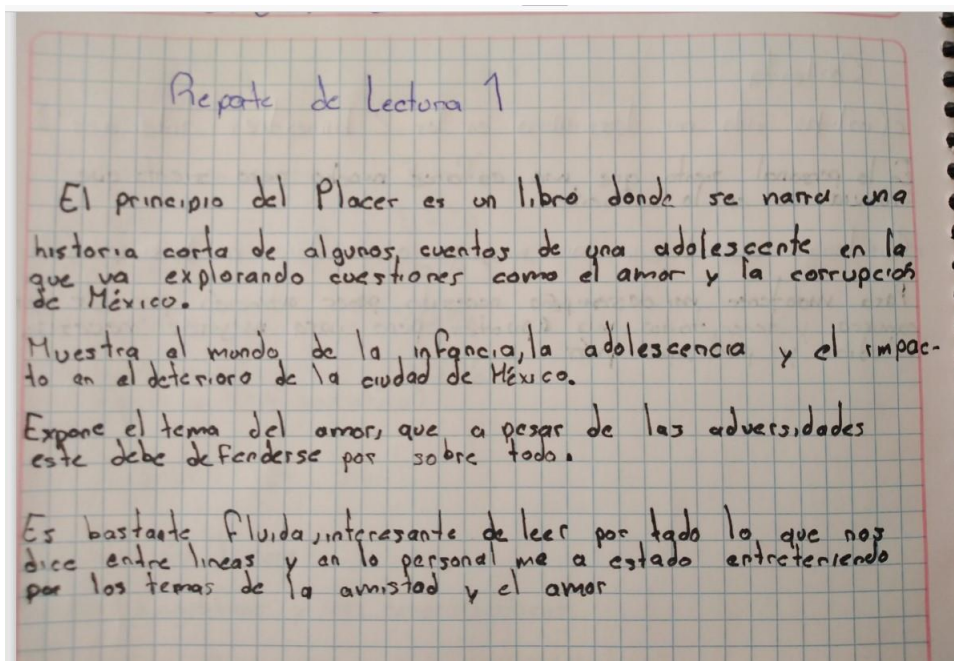 Reporte de Lectura 1
El principio del Placer es un libro donde se narra una
historia corta de algunos cuentos de una adolescente en la
que va explorando cuestiones como el amor y la corrupción
de México.
Muestra el mundo de la infancia, la adolescencia y el impac-
to en el deterioro de la ciudad de México.
Expone el tema del amor, que a pesar de las adversidades
este debe defenderse por sobre todo.
Es bastante fluida, interesante de leer por todo lo que nos
dice entre lineas y en lo personal me a estado entreteniendo
por los temas de la amistad y el amor